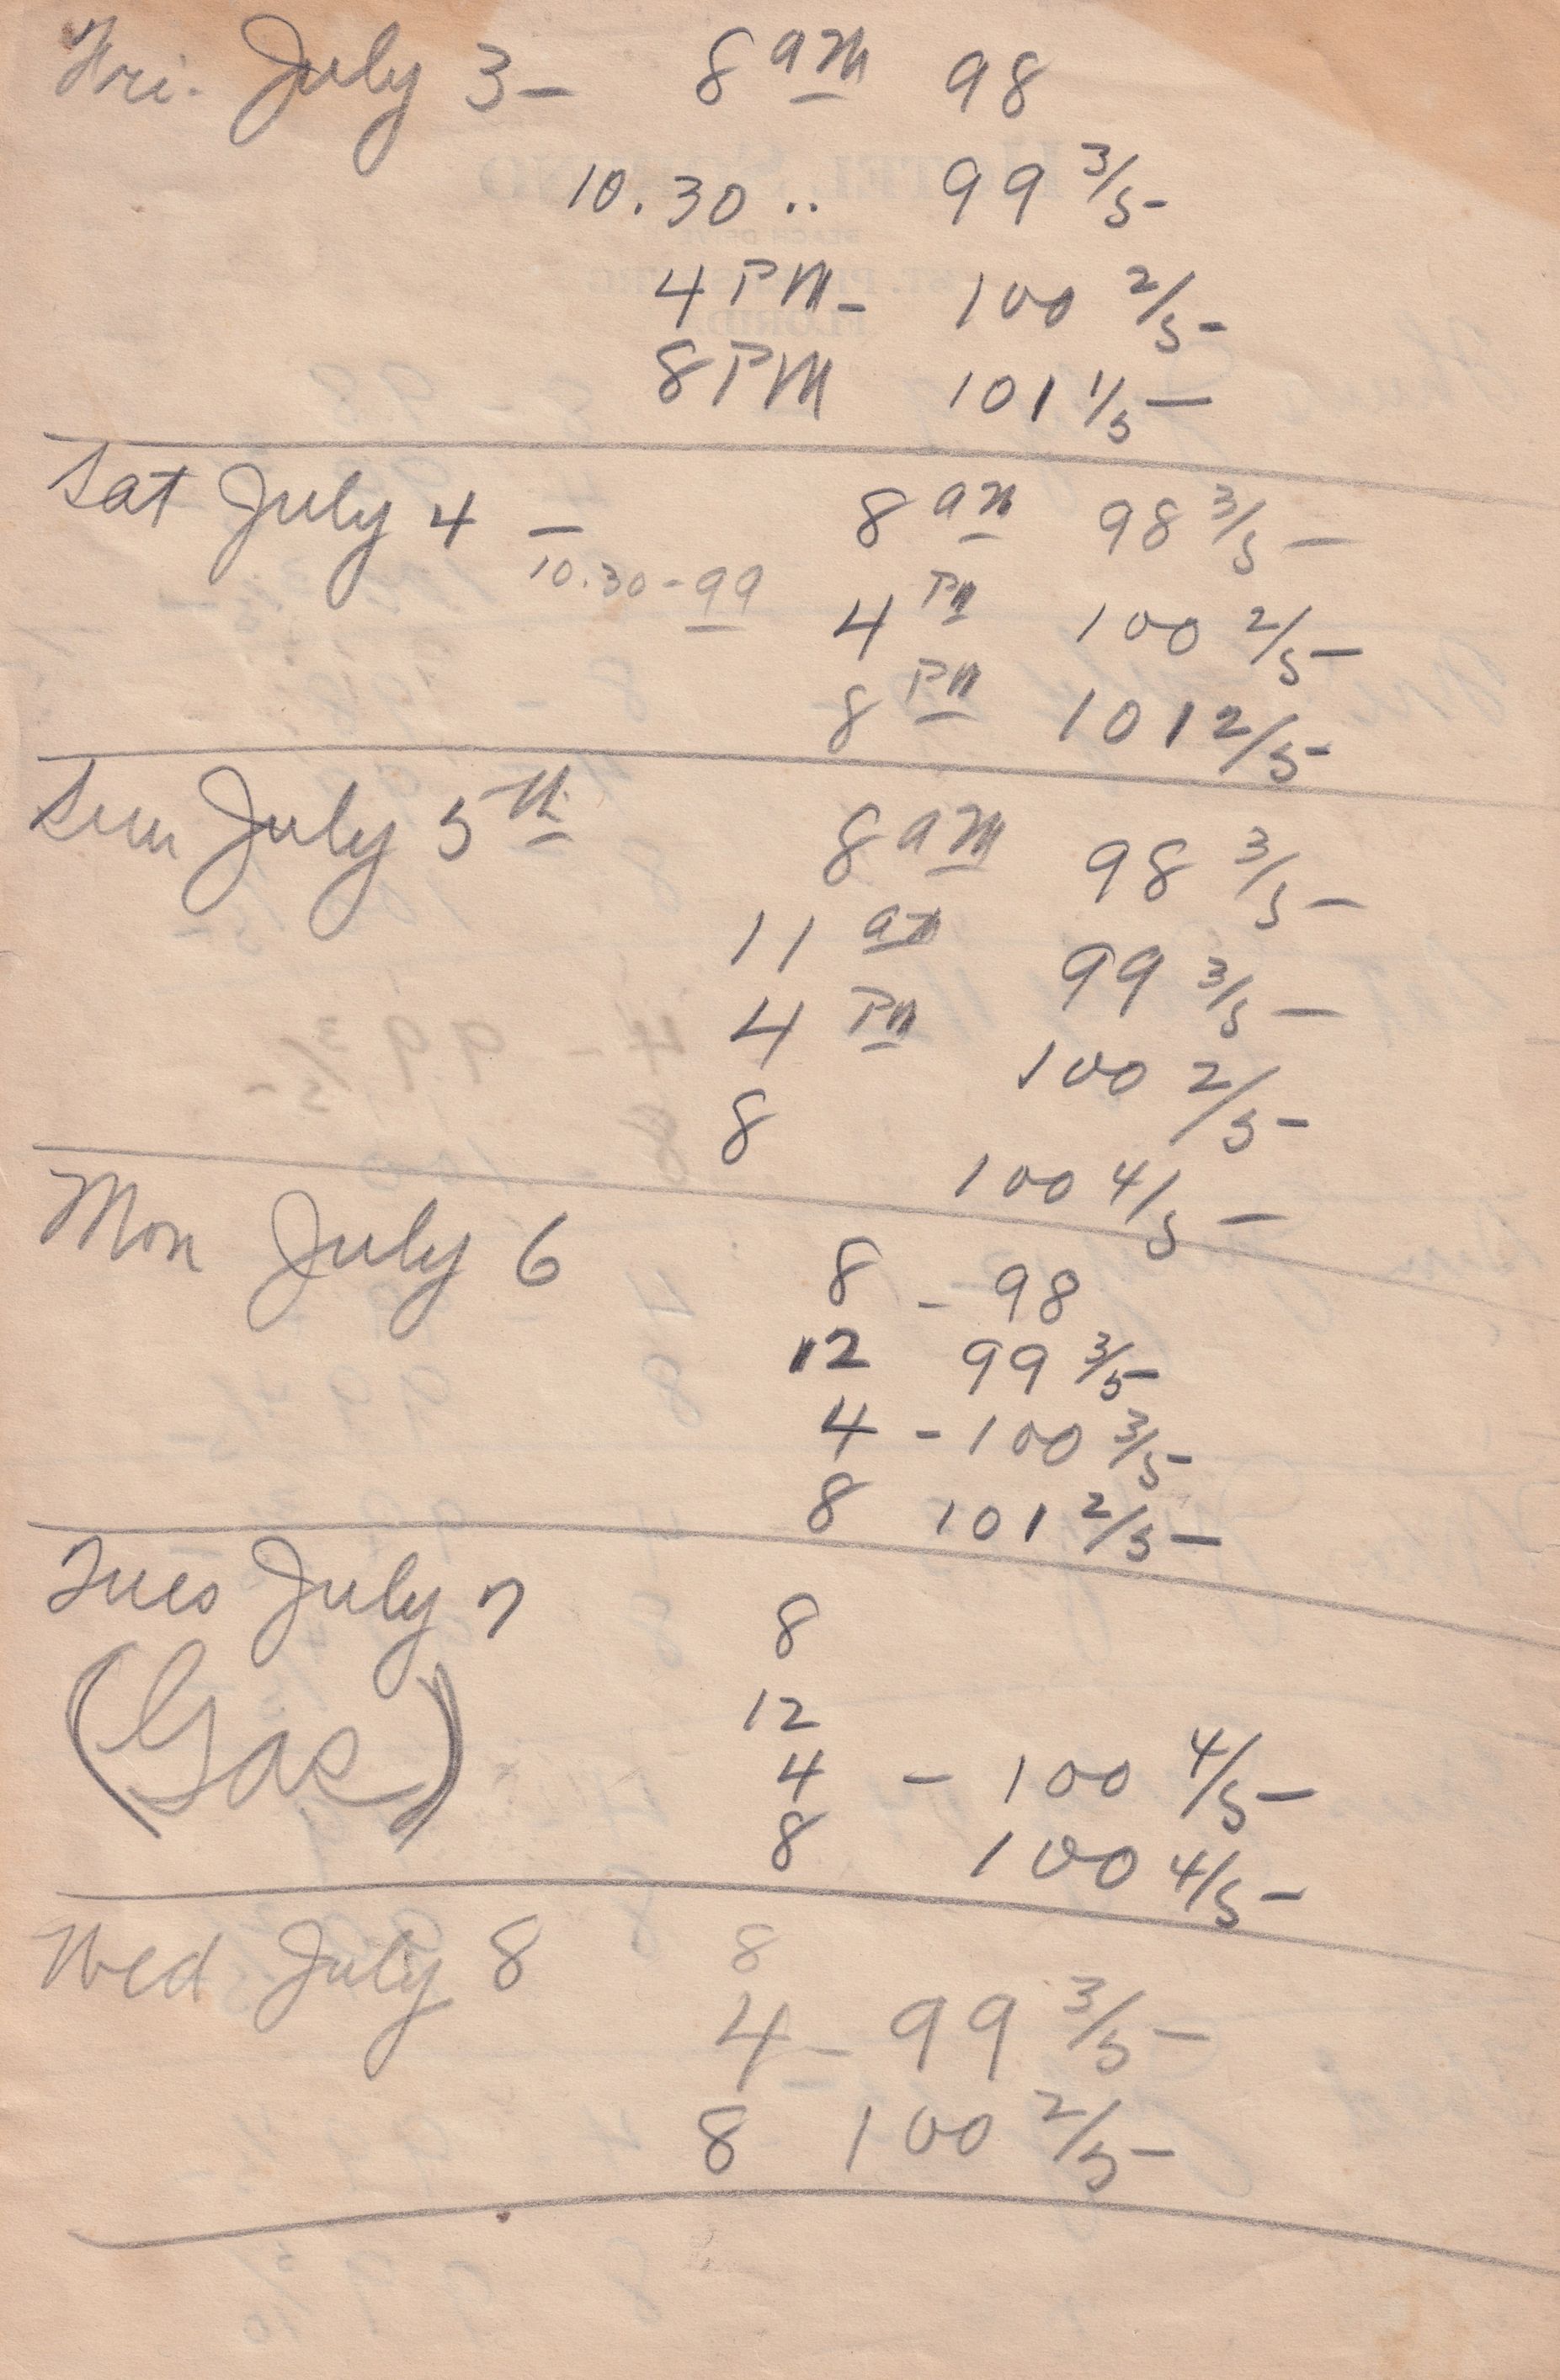 Fri. July 3 - 8 am 98
10.30 .. 99 3/5 -
4 PM - 100 2/5 -
8 PM 101 1/5 -
Sat July 4 - 8 am 98 3/5 -
10.30 - 99
4 PM 100 2/5 -
8 PM 101 2/5 -
Sun July 5th 8 am 98 3/5 -
11 am 99 3/5 -
4 PM 100 2/5 -
8 100 4/5 -
Mon July 6 8 - 98
12 99 3/5 -
4 - 100 3/5 -
8 101 2/5 -
Tues July 7 8
(Gas)
12
4 - 100 4/5 -
8 100 4/5 -
Wed July 8 8
4 - 99 3/5 -
8 100 2/5 -